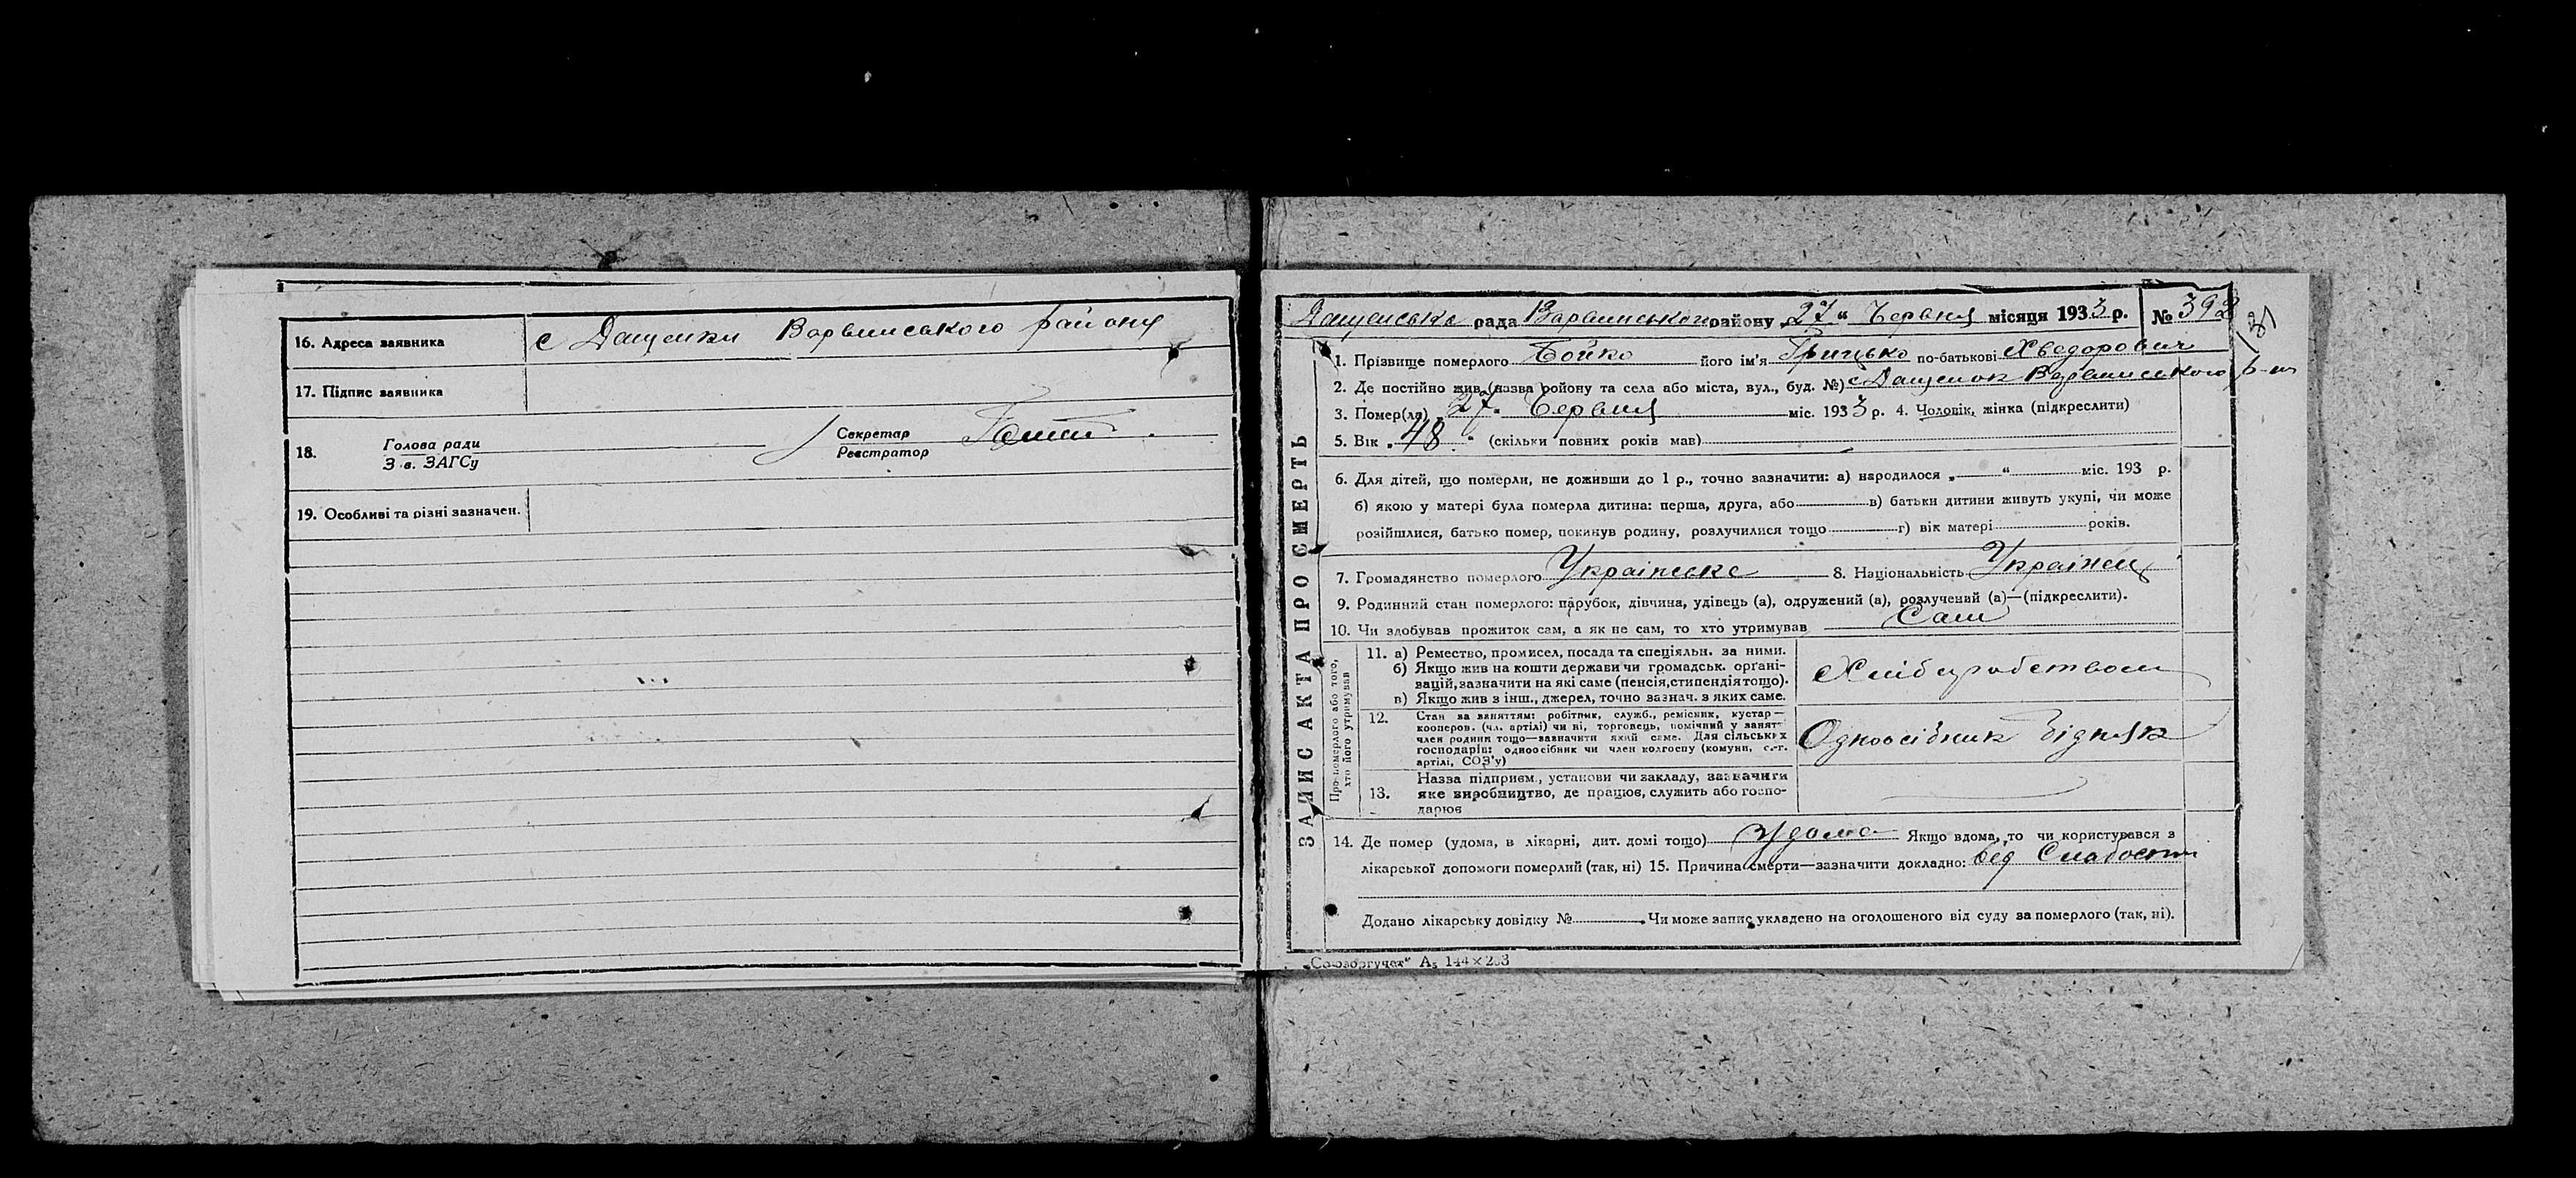 16. Адреса заявника с Дащенки Варвинського району
17. Підпис заявника
18. Голова ради Секретар
З в. ЗАГСу Реєстратор
19. Особливі та різні зазначен.
Дащенська рада Варвинського району „27“ Червня місяця 1933 р. № 392
ЗАПИС АКТА ПРО СМЕРТЬ
1. Прізвище померлого Бойко його ім'я Грицько по-батькові Хведорович
2. Де постійно жив (назва району та села або міста, вул., буд. №) с Дащенок Варвинського р-ну
3. Помер(ла) „27“ Червня міс. 1933 р. 4. Чоловік, жінка (підкреслити)
5. Вік „48“ (скільки повних років мав)
6. Для дітей, що померли, не доживши до 1 р., точно зазначити: а) народилося „ “ міс. 193 р.
б) якою у матері була померла дитина: перша, друга, або в) батьки дитини живуть укупі, чи може
розійшлися, батько помер, покинув родину, розлучилися тощо г) вік матері років.
7. Громадянство померлого Українське 8. Національність Українец
9. Родинний стан померлого: парубок, дівчина, удівець (а), одружений (а), розлучений (а)—(підкреслити).
10. Чи здобував прожиток сам, а як не сам, то хто утримував Сам
Про померлого або того,
хто його утримував
11. а) Ремество, промисел, посада та спеціяльн. за ними.
б) Якщо жив на кошти держави чи громадськ. органі-
зацій, зазначити на які саме (пенсія, стипендія тощо).
в) Якщо жив з інш., джерел, точно зазнач. з яких саме.
Хліборобством
12. Стан за заняттям: робітник, служб., ремісник, кустар—
кооперов. (чл. артілі) чи ні, торговець, помічний у занят.
член родини тощо—зазначити який саме. Для сільських
господарів: одноосібник чи член колгоспу (комуни, с.-г.
артілі, СОЗ'у)
Одноосібник бідняк
13. Назва підприєм., установи чи закладу, зазначити
яке виробництво, де працює, служить або госпо-
дарює
14. Де помер (удома, в лікарні, дит. домі тощо) Удома Якщо вдома, то чи користувався з
лікарської допомоги померлий (так, ні) 15. Причина смерти—зазначити докладно: від Слабости
Додано лікарську довідку № Чи може запис укладено на оголошеного від суду за померлого (так, ні).
„Союзоргучет“ А₅ 144×203